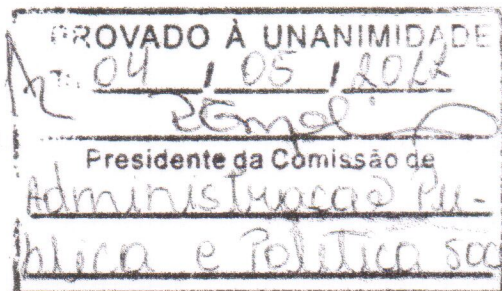 PROVADO À UNANIMIDADE
04 / 05 / 2022
Presidente da Comissão de
Administração Pú-
blica e Política soc